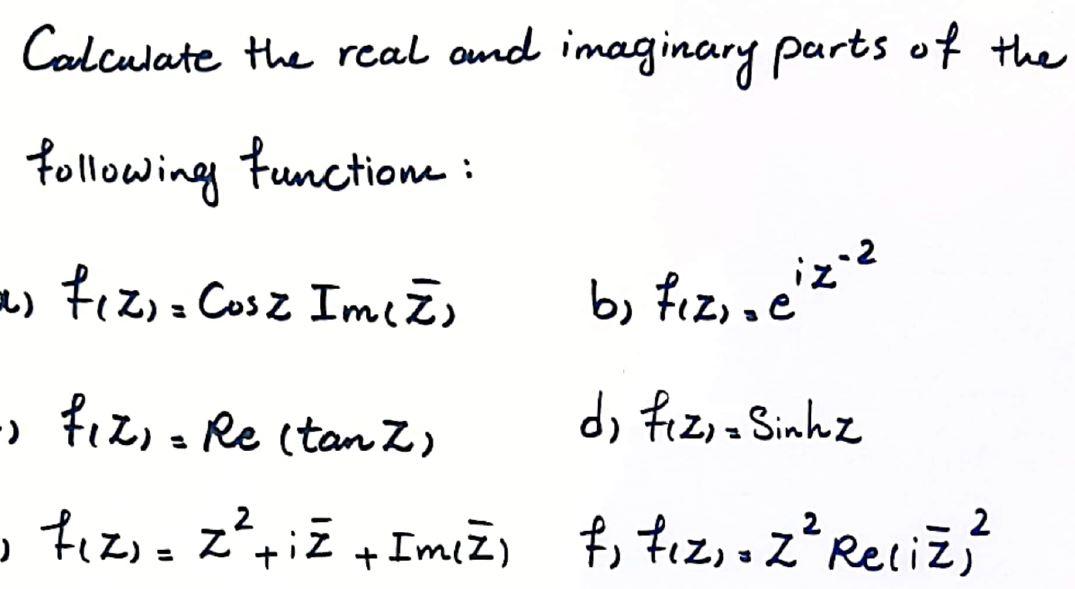 Calculate the real and imaginary parts of the
following functions:
a) f(z) = Cos z Im(z̄) b) f(z) = e^{iz^{-2}}
) f(z) = Re (tan z) d) f(z) = Sinhz
) f(z) = z² + i z̄ + Im(z̄) f) f(z) = z² Re(i z̄)²